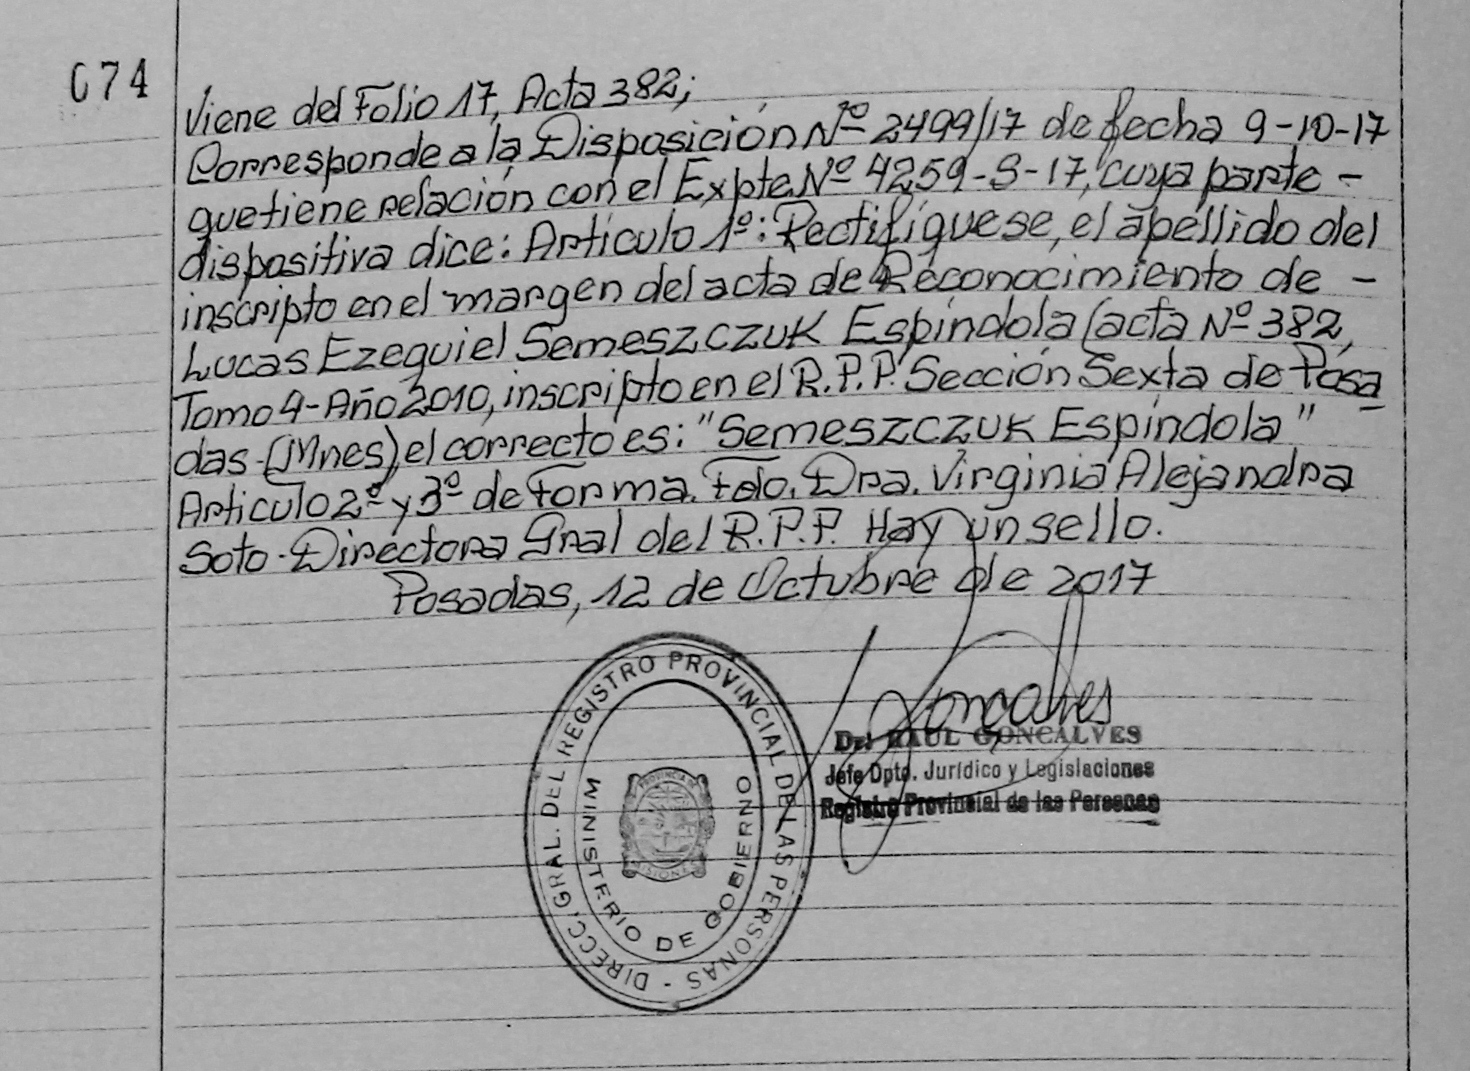 074
Viene del Folio 17, Acta 382;
Corresponde a la Disposición Nº 2499/17 de fecha 9-10-17
que tiene relación con el Expte Nº 4259-S-17, cuya parte -
dispositiva dice: Articulo 1º: Rectifíquese, el apellido del
inscripto en el margen del acta de Reconocimiento de -
Lucas Ezequiel Semeszczuk Espíndola (acta Nº 382,
Tomo 4-Año 2010, inscripto en el R.P.P. Sección Sexta de Posa
das-(Mnes) el correcto es: "Semeszczuk Espíndola"
Articulo 2º y 3º de Forma. Fdo. Dra. Virginia Alejandra
Soto-Directora Gral del R.P.P. Hay un sello.
Posadas, 12 de Octubre de 2017
DIRECC. GRAL. DEL REGISTRO PROVINCIAL DE LAS PERSONAS -
MINISTERIO DE GOBIERNO
PROVINCIA DE
MISIONES
Goncalves
RAUL GONCALVES
Jefe Dpto. Jurídico y Legislaciones
Registro Provincial de las Personas